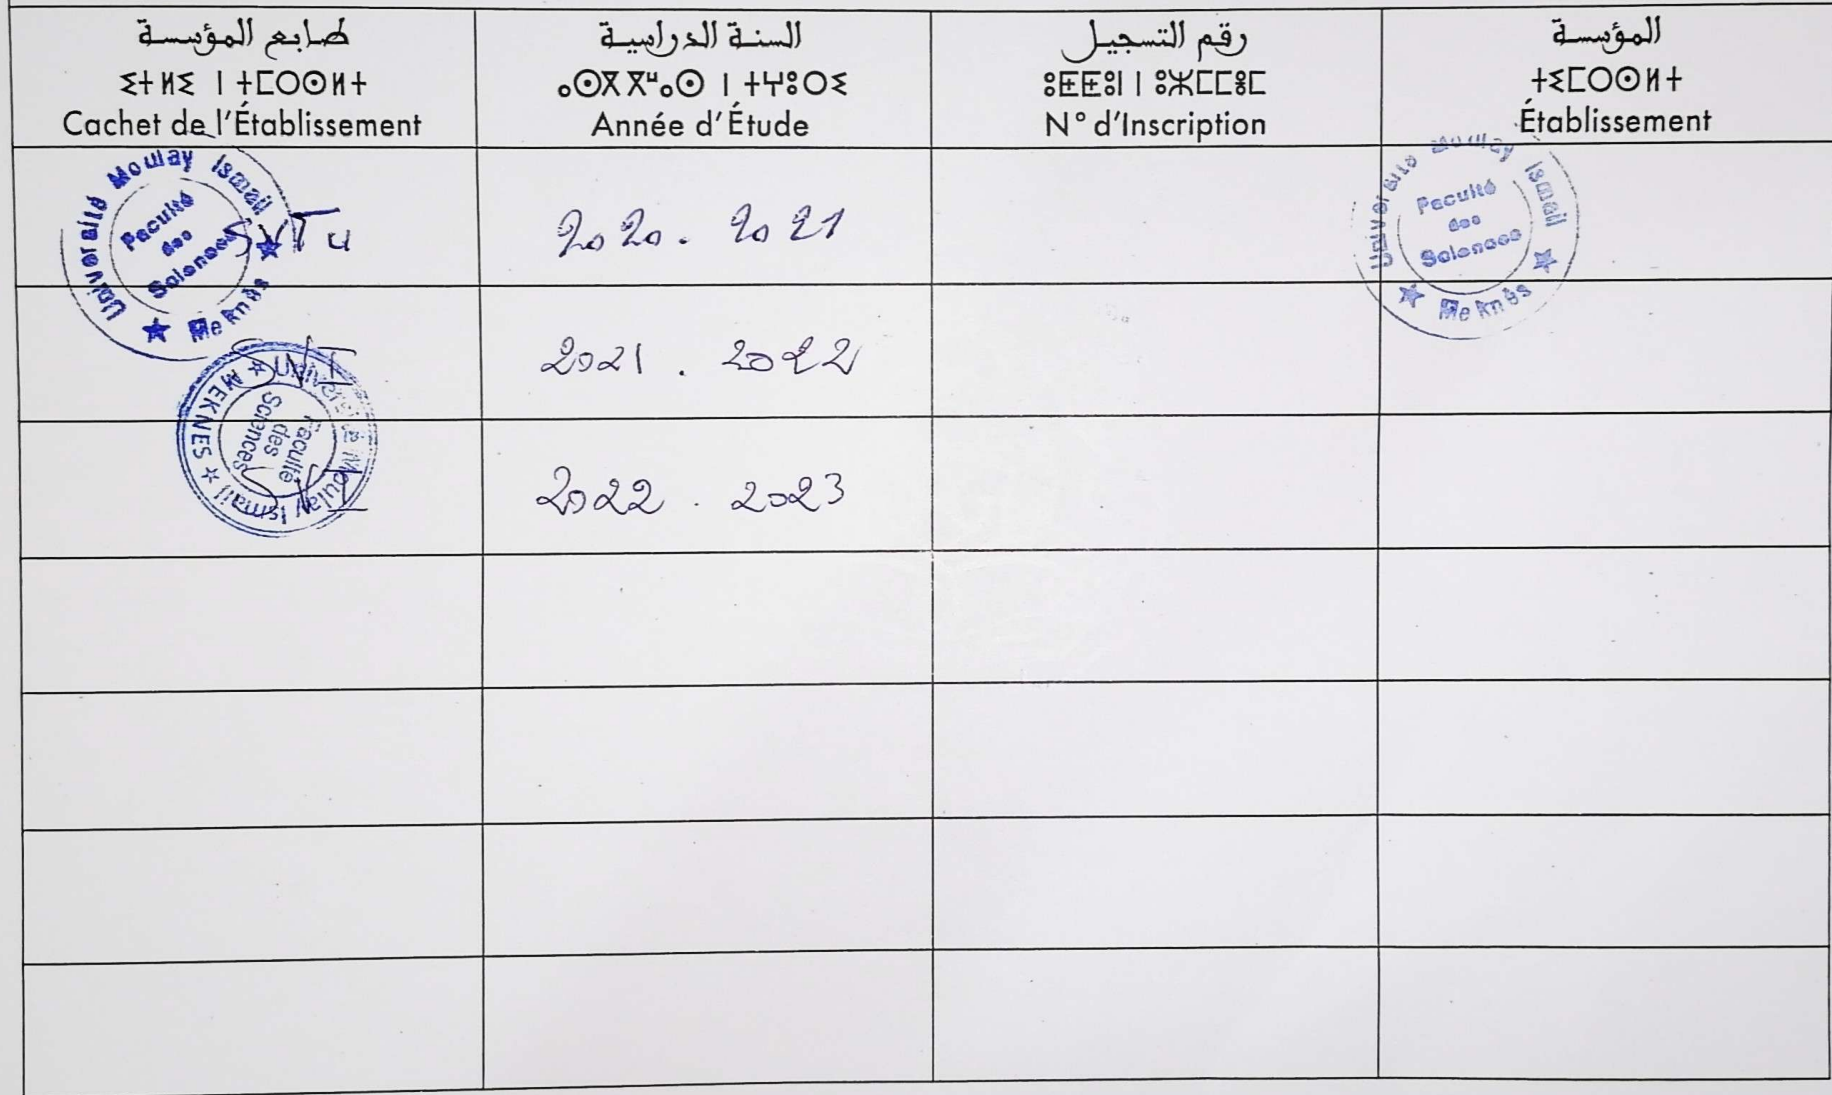 طابع المؤسسة
ⵉⵜⵍⵉ ⵏ ⵜⵎⵔⵙⵍⵜ
Cachet de l'Établissement
السنة الدراسية
ⴰⵙⴳⴳⵯⴰⵙ ⵏ ⵜⵖⵓⵔⵉ
Année d'Étude
رقم التسجيل
ⵓⵟⵟⵓⵏ ⵏ ⵓⵣⵎⵎⵓⵎ
N° d'Inscription
المؤسسة
ⵜⵉⵎⵔⵙⵍⵜ
Établissement
Université Moulay Ismail
Faculté
des
Sciences
Meknès
2020. 2021
Université Moulay Ismail
Faculté
des
Sciences
Meknès
SVT
2021. 2022
Université Moulay Ismail
Faculté
des
Sciences
MEKNES
SVI
2022. 2023